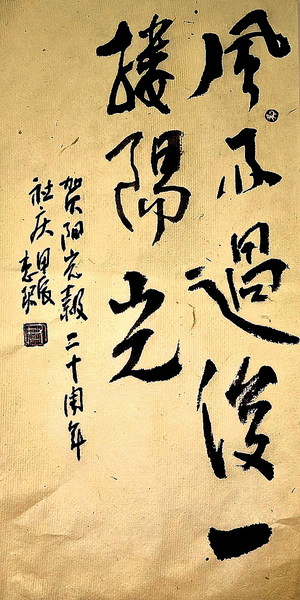 風雨過後一
縷陽光
贺阳光報二十周年
社庆甲辰